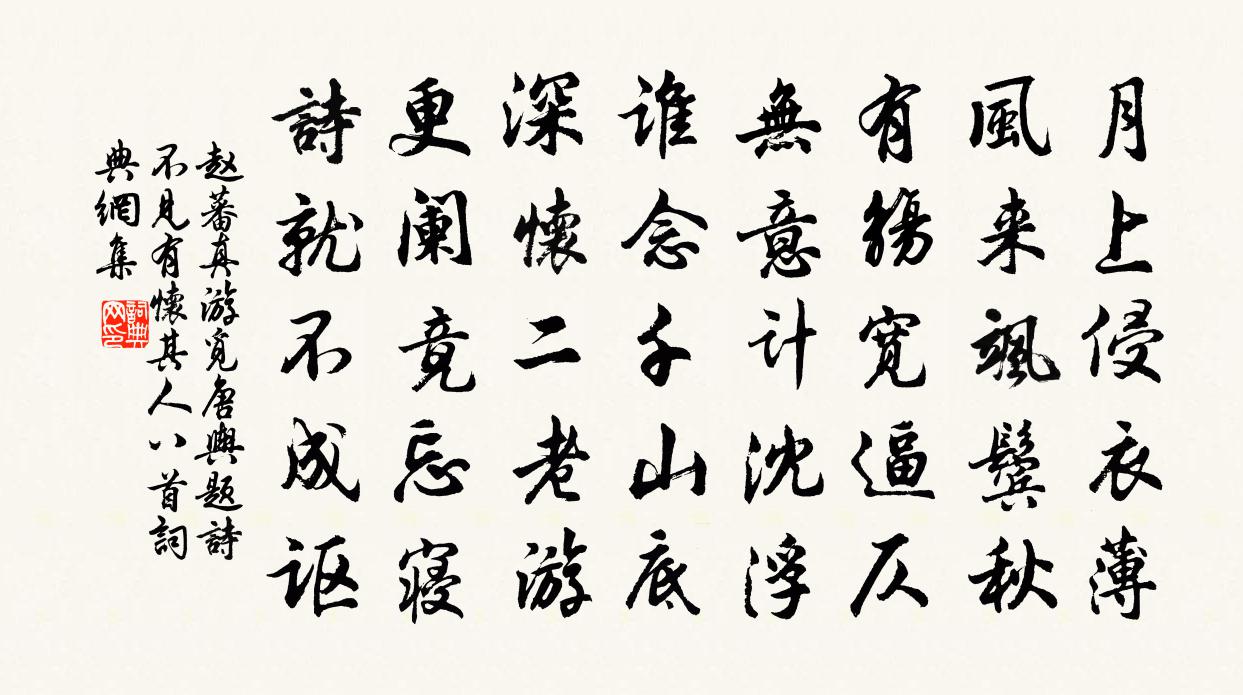 月上侵衣薄
風来颯鬓秋
有觴宽逼仄
無意计沈浮
谁念千山底
深懷二老游
更阑竟忘寝
詩就不成讴
赵蕃真游覓唐興题詩
不見有懷其人八首詞
典網集
詞典
网印